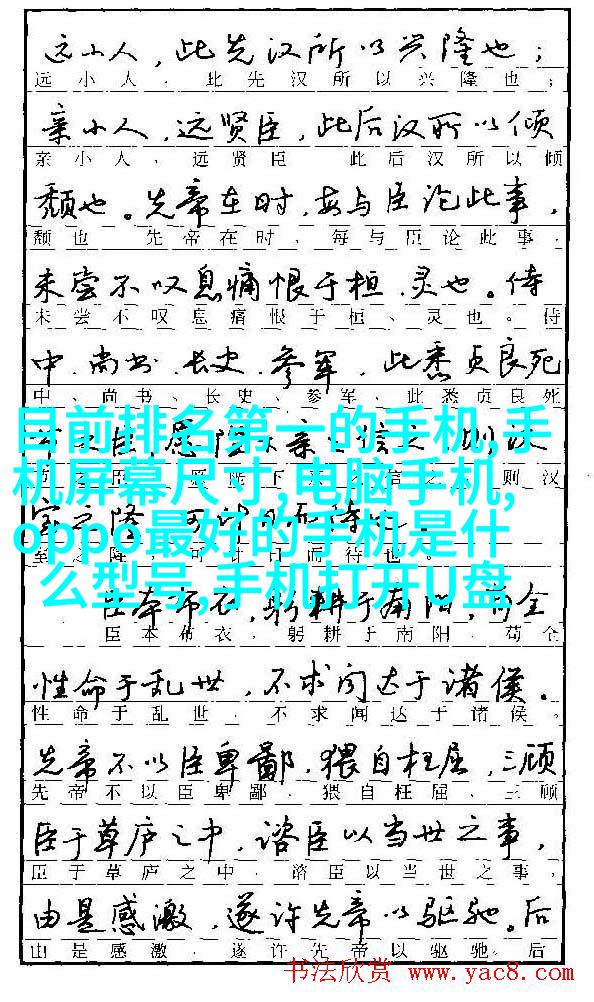 远小人，此先汉所以兴隆也；
远小人，此先汉所以兴隆也；
亲小人，远贤臣，此后汉所以倾
亲小人，远贤臣 此后汉所以倾
颓也。先帝在时，每与臣论此事，
颓也 先帝在时，每与臣论此事，
未尝不叹息痛恨于桓、灵也。侍
未尝不叹息痛恨于桓、灵也。侍
中、尚书、长史、参军，此悉贞良死
中、尚书、长史、参军，此悉贞良死
目前排名第一的手机,手
机屏幕尺寸,电脑手机,
oppo最好的手机是什
么型号,手机打开U盘
室之隆，可计日而待也。
室之隆 可计日而待也。
臣本布衣，躬耕于南阳，苟全
臣本布衣，躬耕于南阳，苟全
性命于乱世，不求闻达于诸侯。
性命于乱世，不求闻达于诸侯。
先帝不以臣卑鄙，猥自枉屈，三顾
先帝不以臣卑鄙，猥自枉屈、三顾
臣于草庐之中，谘臣以当世之事，
臣于草庐之中，谘臣以当世之事，
由是感激，遂许先帝以驱驰。后
由是感激，遂许先帝以驱驰。后
书法欣赏 www.yac8.com